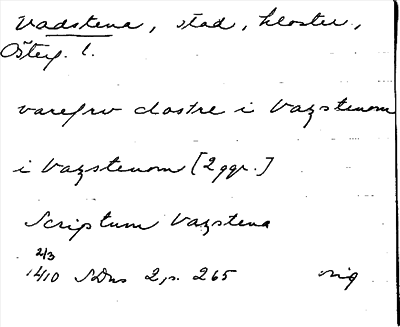 Vadstena, stad, kloster,
Österg. l.
varefrv clostre i Vazstenom
i Vazstenom [2 ggr.]
Scriptum Vazstena
2/3
1410 SDns 2, s. 265 orig